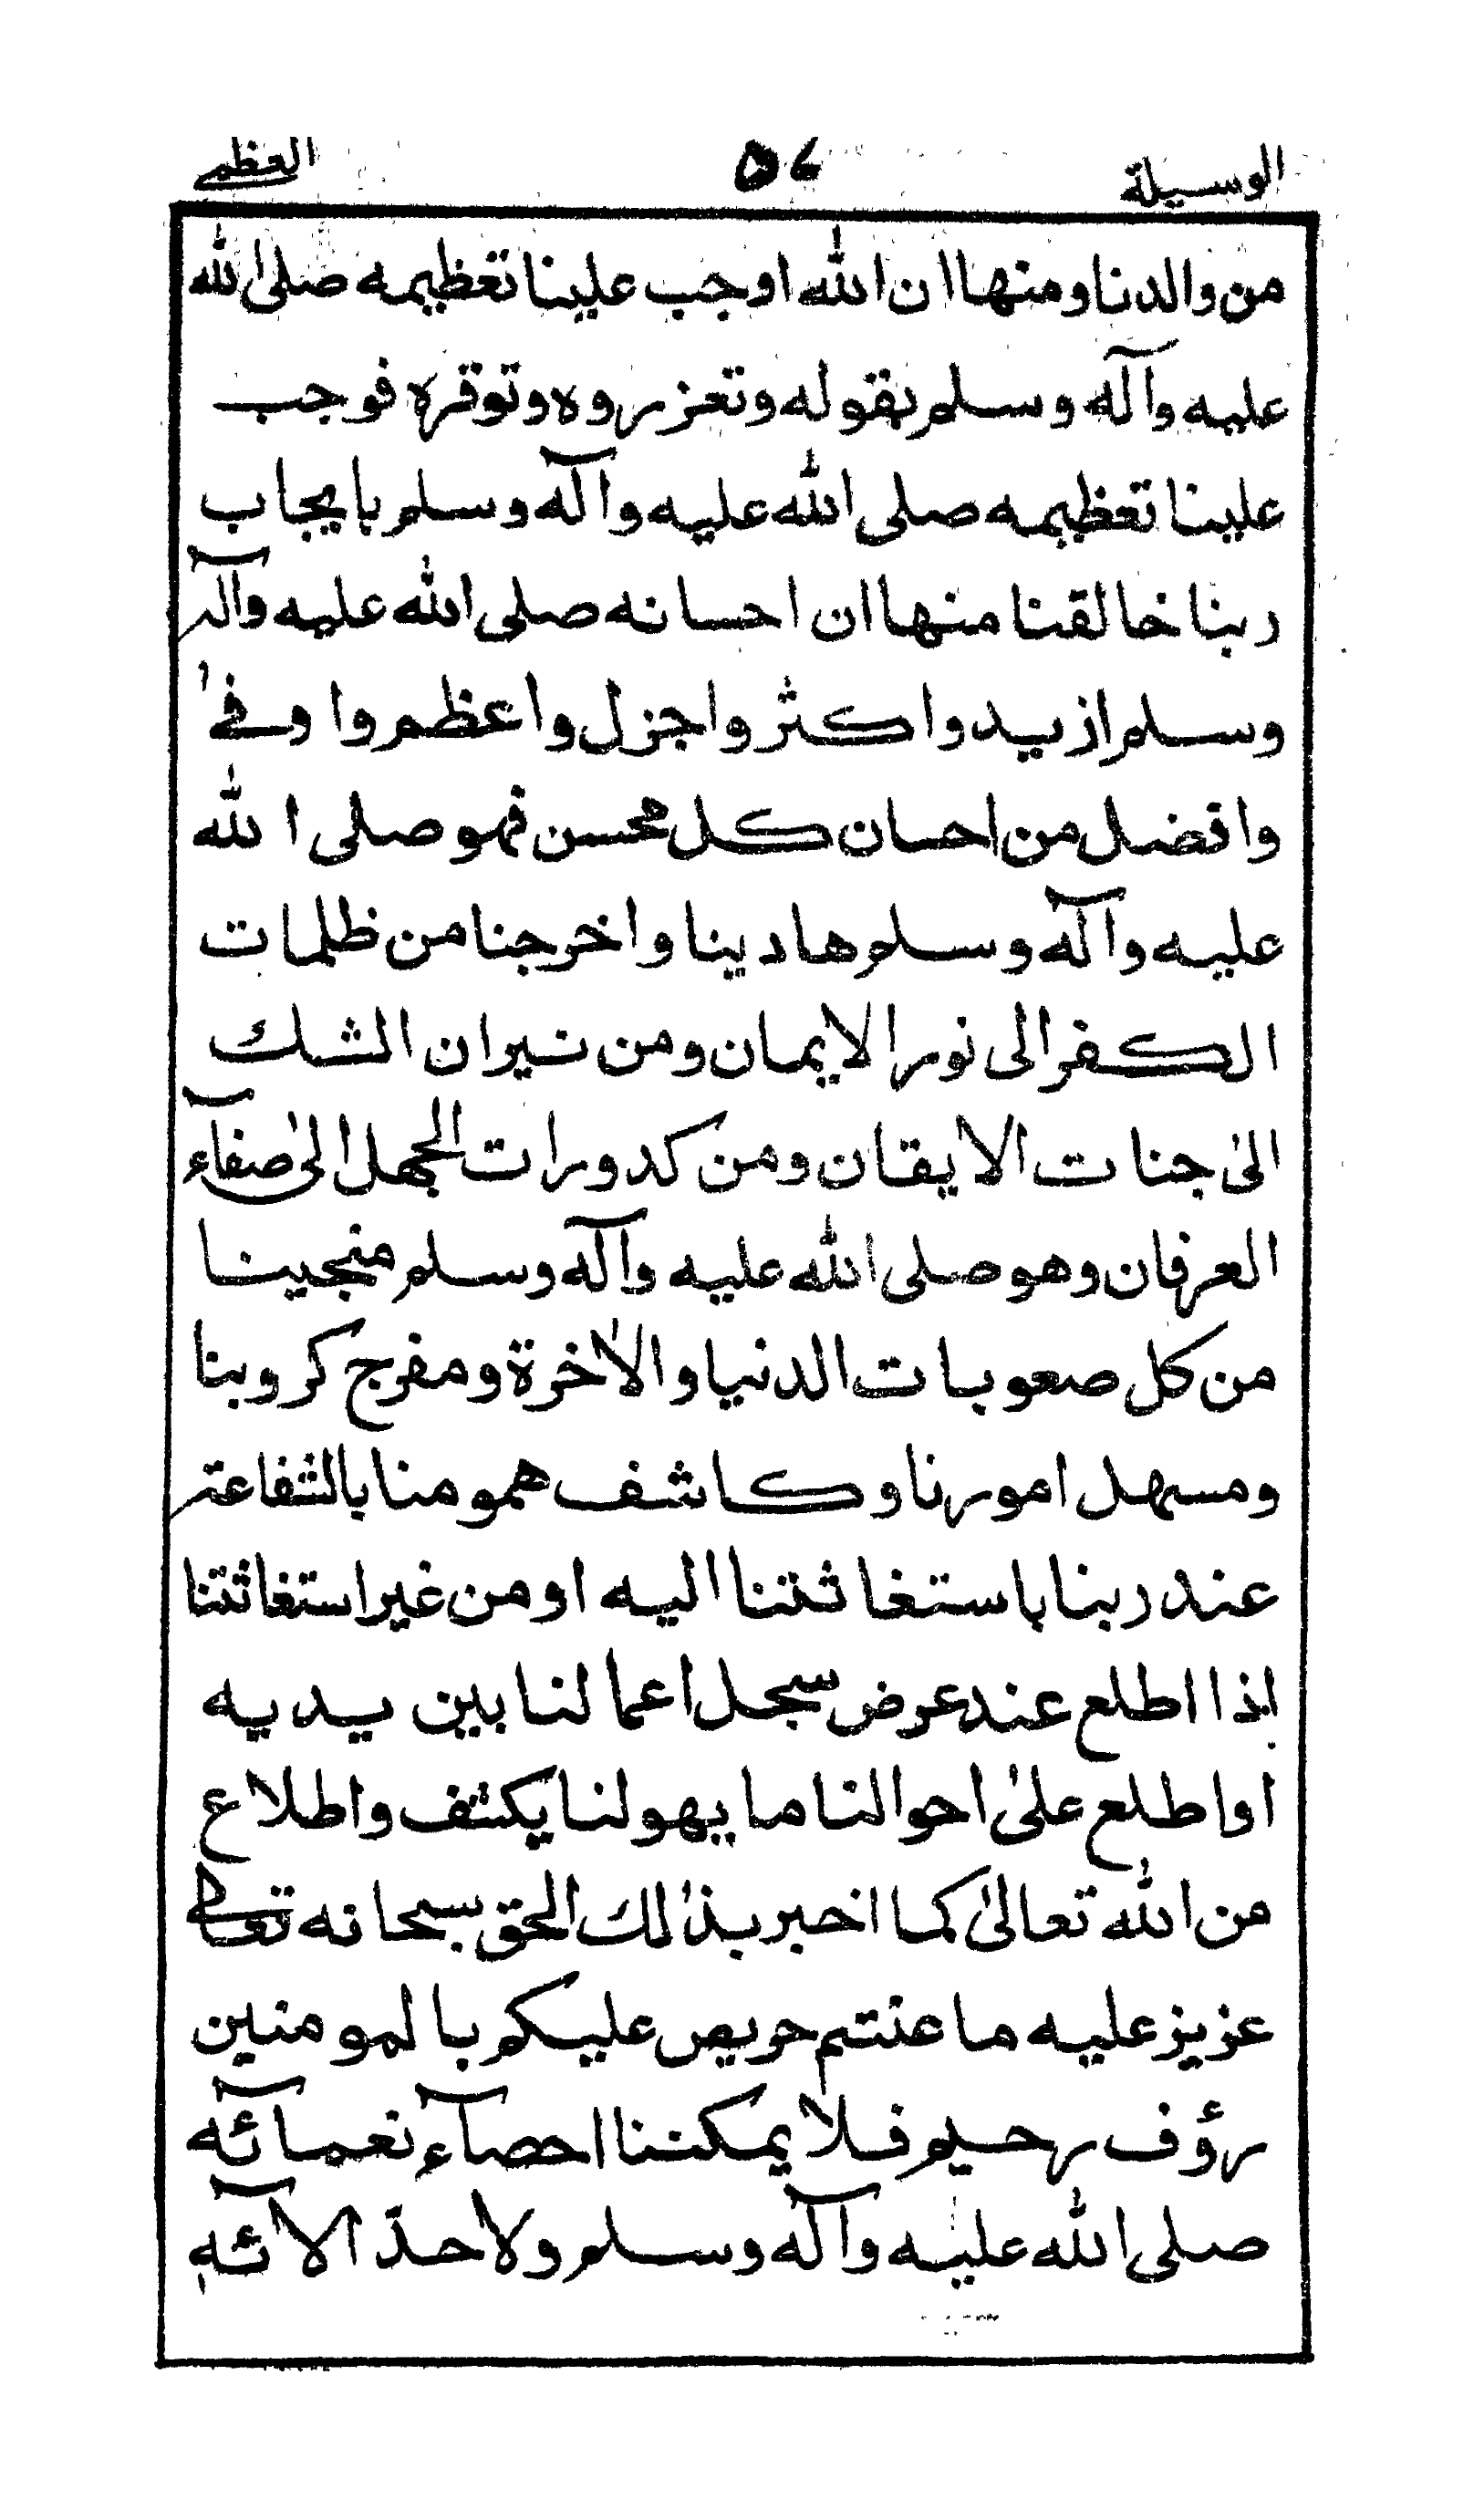 الوسيلة ٥٧ العظمى
من والدنا ومنها ان الله اوجب علينا تعظيمه صلى الله
عليه وآله وسلم بقوله وتعزروه وتوقره فوجب
علينا تعظيمه صلى الله عليه وآله وسلم بايجاب
ربنا خالقنا منها ان احسانه صلى الله عليه وآله
وسلم ازيد واكثر واجزل واعظم واوفىٰ
وافضل من احسان كل محسن فهو صلى الله
عليه وآله وسلم هادينا واخرجنا من ظلمات
الكفر الى نور الايمان ومن نيران الشك
الىٰ جنات الايقان ومن كدورات الجهل الىٰ صفآء
العرفان وهو صلى الله عليه وآله وسلم منجينا
من كل صعوبات الدنيا والاٰخرة ومفرج كروبنا
ومسهل امورنا وكاشف همومنا بالشفاعة
عند ربنا باستغاثتنا اليه او من غير استغاثتنا
اذا اطلع عند عرض سجل اعمالنا بين يديه
او اطلع علىٰ احوالنا ما يهولنا يكشف واطلاع
من الله تعالىٰ كما اخبر بذٰلك الحق سبحانه تعالى
عزيز عليه ما عنتم حريص عليكم بالمومنين
رؤف رحيم فلا يمكننا احصآء نعمآئه
صلى الله عليه وآله وسلم ولا حدّ الآئه